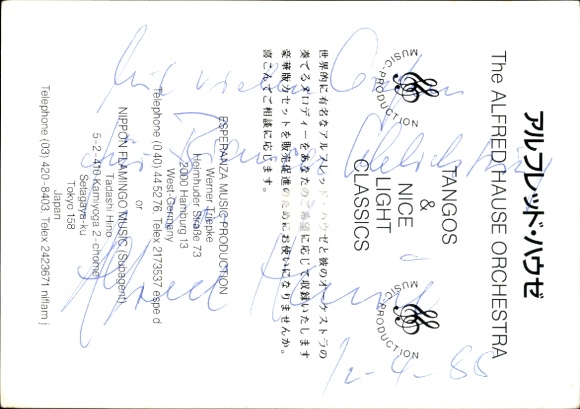 アルフレッド・ハウゼ
The ALFRED HAUSE ORCHESTRA
MUSIC-PRODUCTION
TANGOS
&
NICE
LIGHT
CLASSICS
MUSIC-PRODUCTION
世界的に有名なアルフレッド・ハウゼと彼のオーケストラの
奏でるメロディーをあなたのご希望に応じて収録いたします
豪華版カセットを販売促進のためにお使いになりませんか。
喜こんでご相談に応じます。
ESPERANZA MUSIC-PRODUCTION
Werner Triepke
Heimhuder Straße 73
2000 Hamburg 13
West-Germany
Telephone (040) 44 52 76, Telex 2173537 espe d
or
NIPPON FLAMINGO MUSIC (Subagent)
Tadashi Hino
5-2-410 Kamiyoga 2-chome
Setagaya-ku
Tokyo 158
Japan
Telephone (03) 420-8403, Telex 2423671 nflam j
Mit vielen Grüßen
für
Alfred Hause
12-4-88